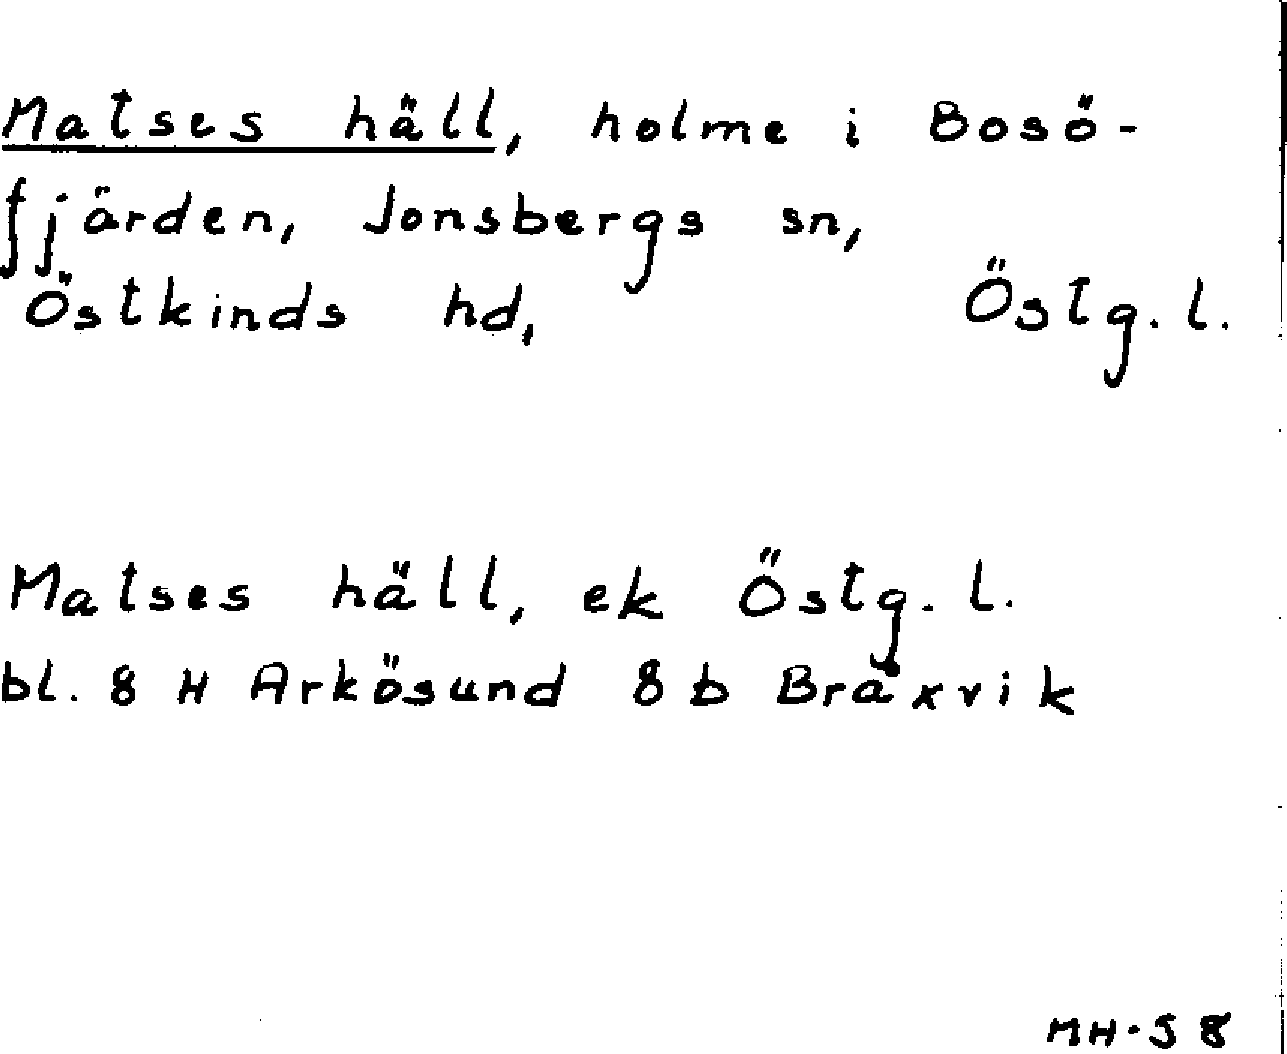 Matses häll, holme i Bosö-
fjärden, Jonsbergs sn,
Östkinds hd, Östg. l.
Matses häll, ek Östg. l.
bl. 8 H Arkösund 8 b Bråxvik
MH-58